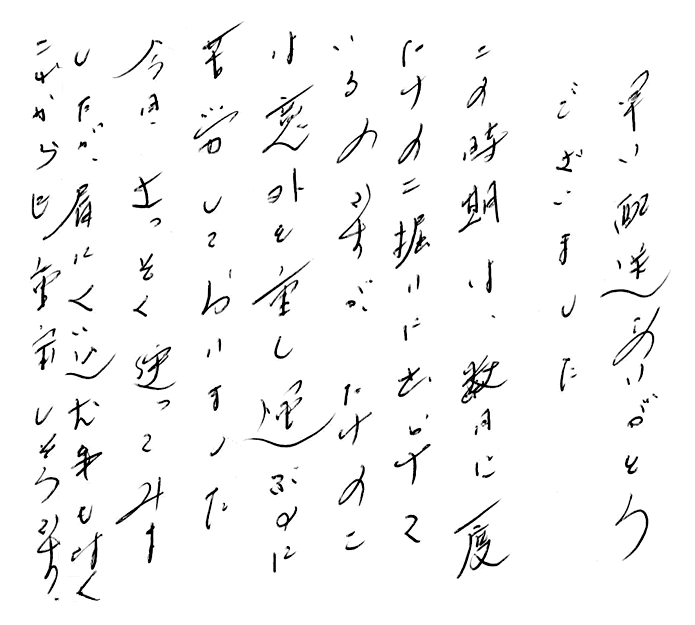 早い配達ありがとう
ございました
この時期は、数日に一度
たけのこ掘りに出かけて
いるのですが、たけのこ
は意外と重く運ぶのに
苦労しておりました
今日、さっそく使ってみま
したが、肩にくい込む事もなく
これから日重宝しそうです。